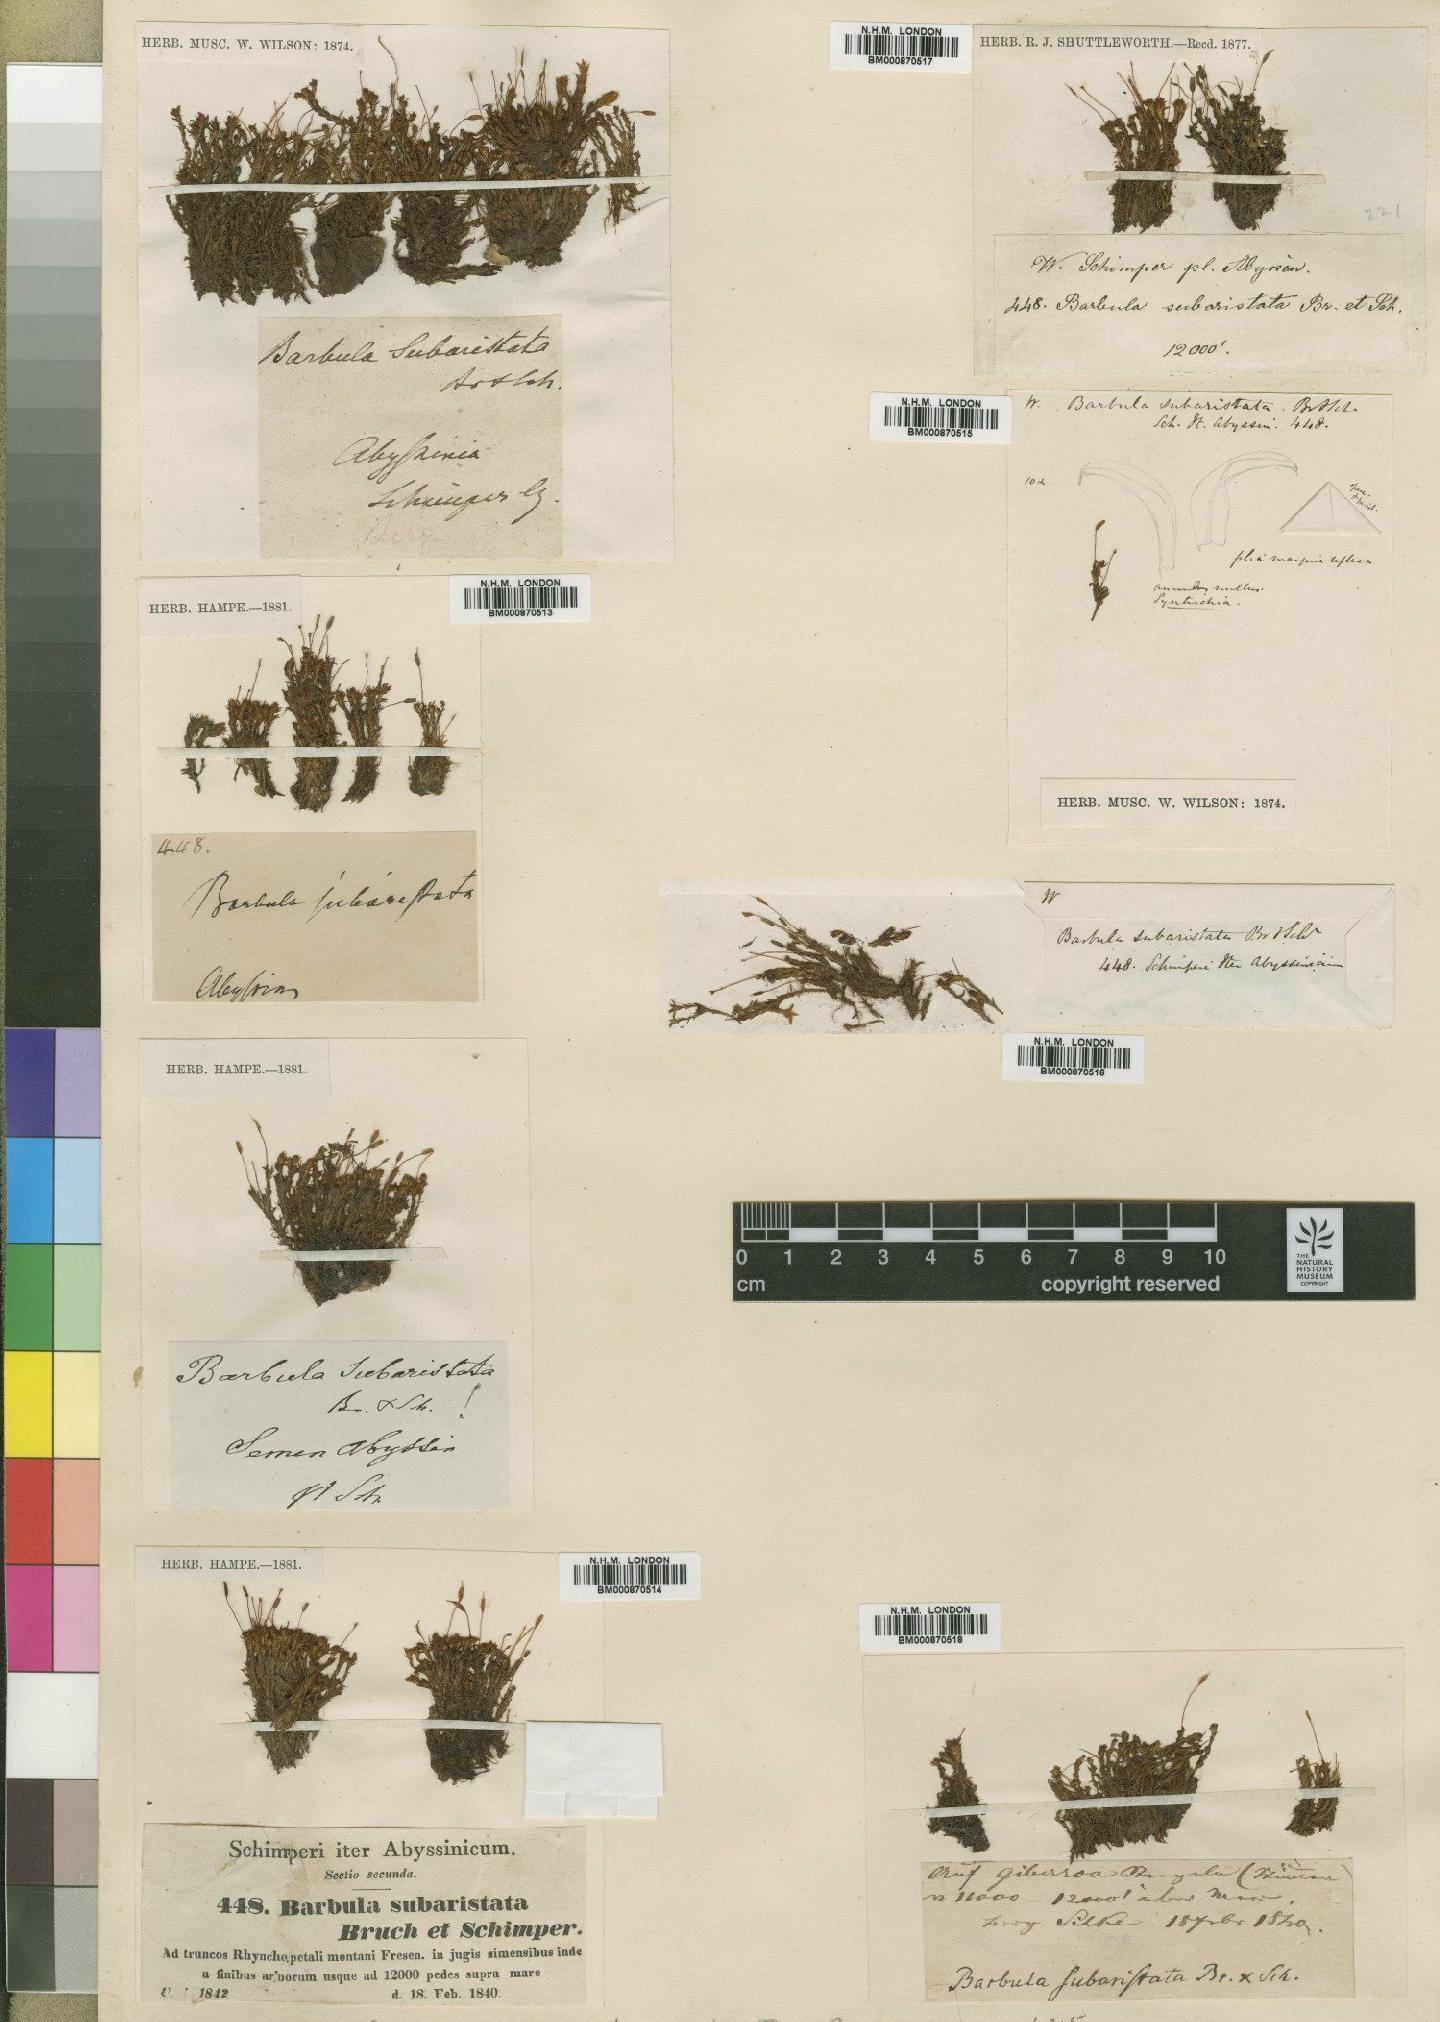 HERB. MUSC. W. WILSON: 1874.
Barbula Subaristata
Br & Sch.
Abyssinia
Schimper
N.H.M. LONDON
BM000870517
HERB. R. J. SHUTTLEWORTH.—Recd. 1877.
221
W. Schimper pl. Abyssin.
448. Barbula subaristata Br. et Sch.
12000'.
N.H.M. LONDON
BM000870515
W. Barbula subaristata. Br & Sch.
Sch. It. Abyssin. 448.
annulus nullus.
Syntrichia.
HERB. MUSC. W. WILSON: 1874.
HERB. HAMPE.—1881.
N.H.M. LONDON
BM000870513
448.
Barbula subaristata
W
Barbula subaristata Br & Sch
448. Schimperi Iter Abyssinicum
N.H.M. LONDON
BM000870516
HERB. HAMPE.—1881.
Barbula Subaristata
B. & Sch. !
Semen Abyssin
0 1 2 3 4 5 6 7 8 9 10
cm
copyright reserved
THE
NATURAL
HISTORY
MUSEUM
COPYRIGHT
HERB. HAMPE.—1881.
N.H.M. LONDON
BM000870514
Schimperi iter Abyssinicum.
Sectio secunda.
448. Barbula subaristata
Bruch et Schimper.
Ad truncos Rhynchopetali montani Fresen. in jugis simensibus inde
a finibus arborum usque ad 12000 pedes supra mare
1842 d. 18. Feb. 1840.
N.H.M. LONDON
BM000870518
11000 12000'
Barbula subaristata Br. & Sch.